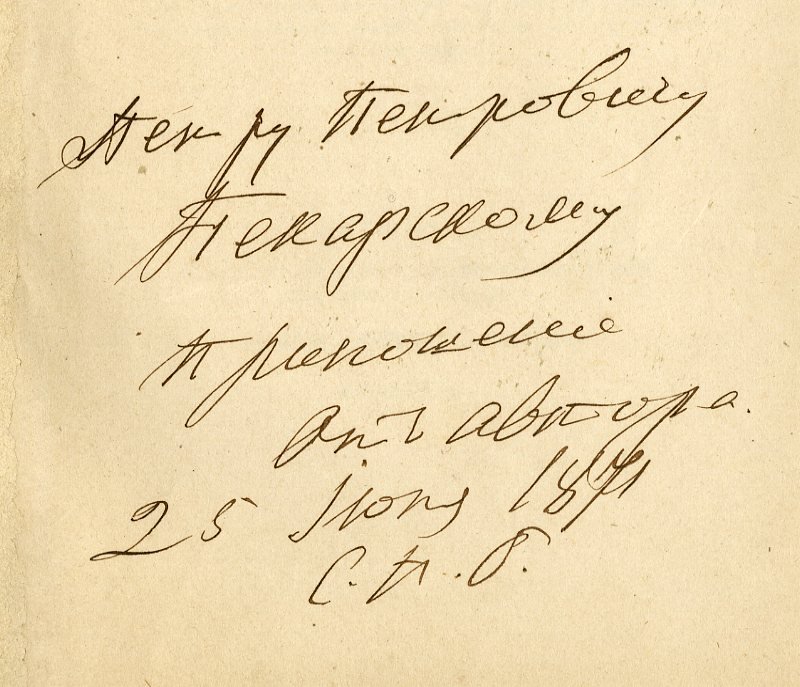 Петру Петровичу
Пекарскому
Приношеніе
отъ автора.
25 Іюня 1871
С. П. б.